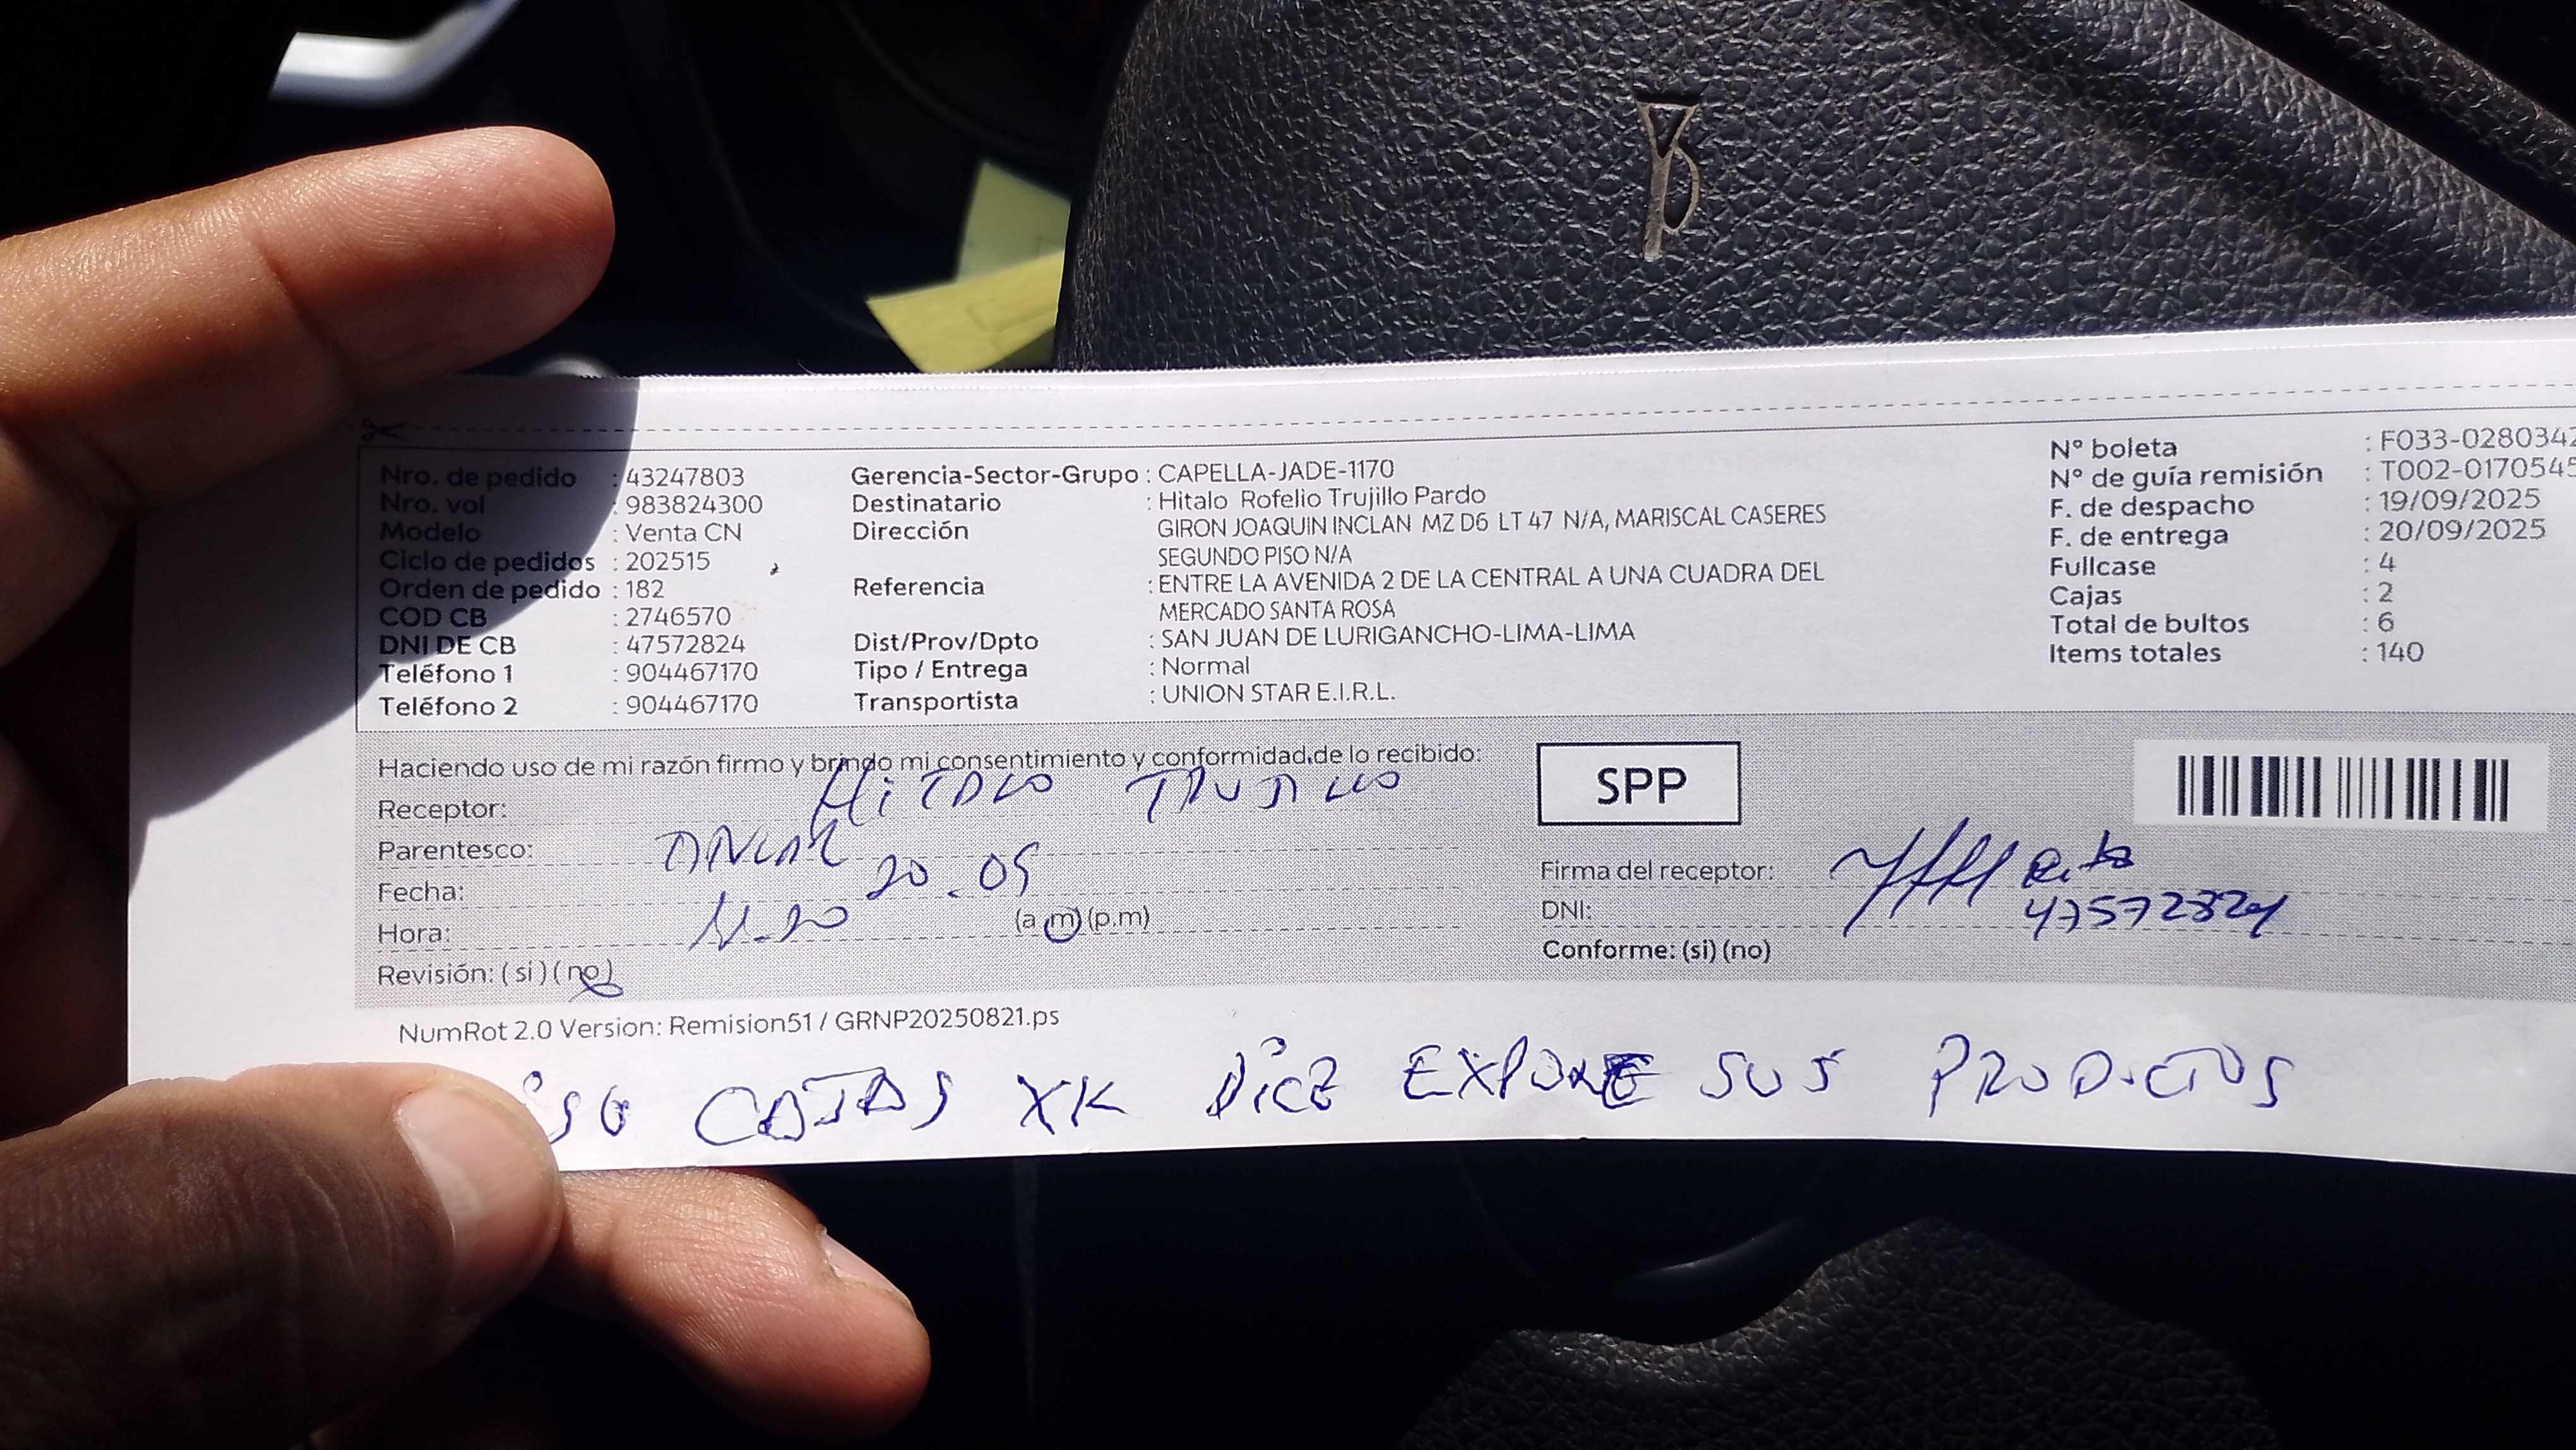 Nro. de pedido : 43247803
Nro. vol : 983824300
Modelo : Venta CN
Ciclo de pedidos : 202515
Orden de pedido : 182
COD CB : 2746570
DNI DE CB : 47572824
Teléfono 1 : 904467170
Teléfono 2 : 904467170
Gerencia-Sector-Grupo : CAPELLA-JADE-1170
Destinatario : Hitalo Rofelio Trujillo Pardo
Dirección GIRON JOAQUIN INCLAN MZ D6 LT 47 N/A, MARISCAL CASERES
SEGUNDO PISO N/A
Referencia : ENTRE LA AVENIDA 2 DE LA CENTRAL A UNA CUADRA DEL
MERCADO SANTA ROSA
Dist/Prov/Dpto : SAN JUAN DE LURIGANCHO-LIMA-LIMA
Tipo / Entrega : Normal
Transportista : UNION STAR E.I.R.L.
N° boleta : F033-0280342
N° de guía remisión : T002-0170545
F. de despacho : 19/09/2025
F. de entrega : 20/09/2025
Fullcase : 4
Cajas : 2
Total de bultos : 6
Items totales : 140
Haciendo uso de mi razón firmo y brindo mi consentimiento y conformidad de lo recibido:
Receptor: HiTALO TRUJILLO
Parentesco:
Fecha: 20.09
Hora: 11.20 (a.m) (p.m)
Revisión: (si) (no)
SPP
Firma del receptor:
DNI: 47572824
Conforme: (si) (no)
NumRot 2.0 Version: Remision51 / GRNP20250821.ps
CAJAS XK DiCE EXPONE SUS PRODUCTOS